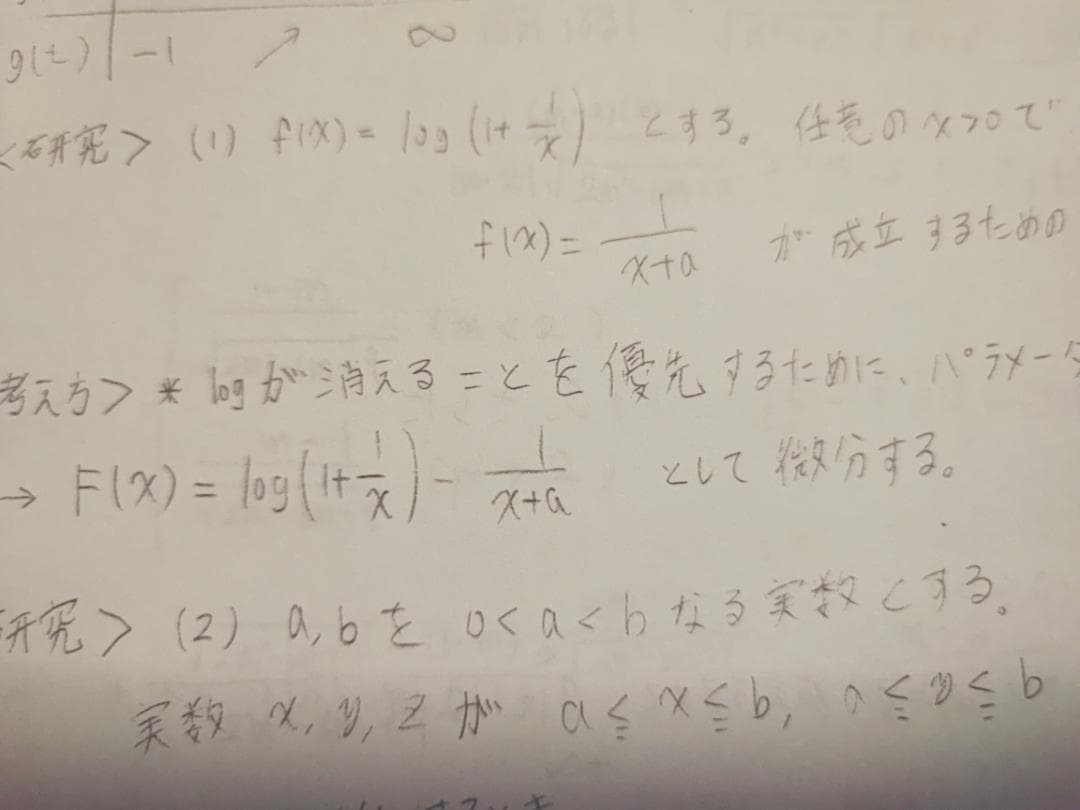 g(t) -1 ↗ ∞
<研究> (1) f(x) = log(1+1/x) とする。任意の x>0 で
f(x) = 1/(x+a) が 成立 するための
考え方> * logが消えることを優先するために、パラメータ
→ F(x) = log(1+1/x) - 1/(x+a) として 微分する。
研究> (2) a, b を 0<a<b なる実数とする。
実数 x, y, z が a≦x≦b, a≦y≦b